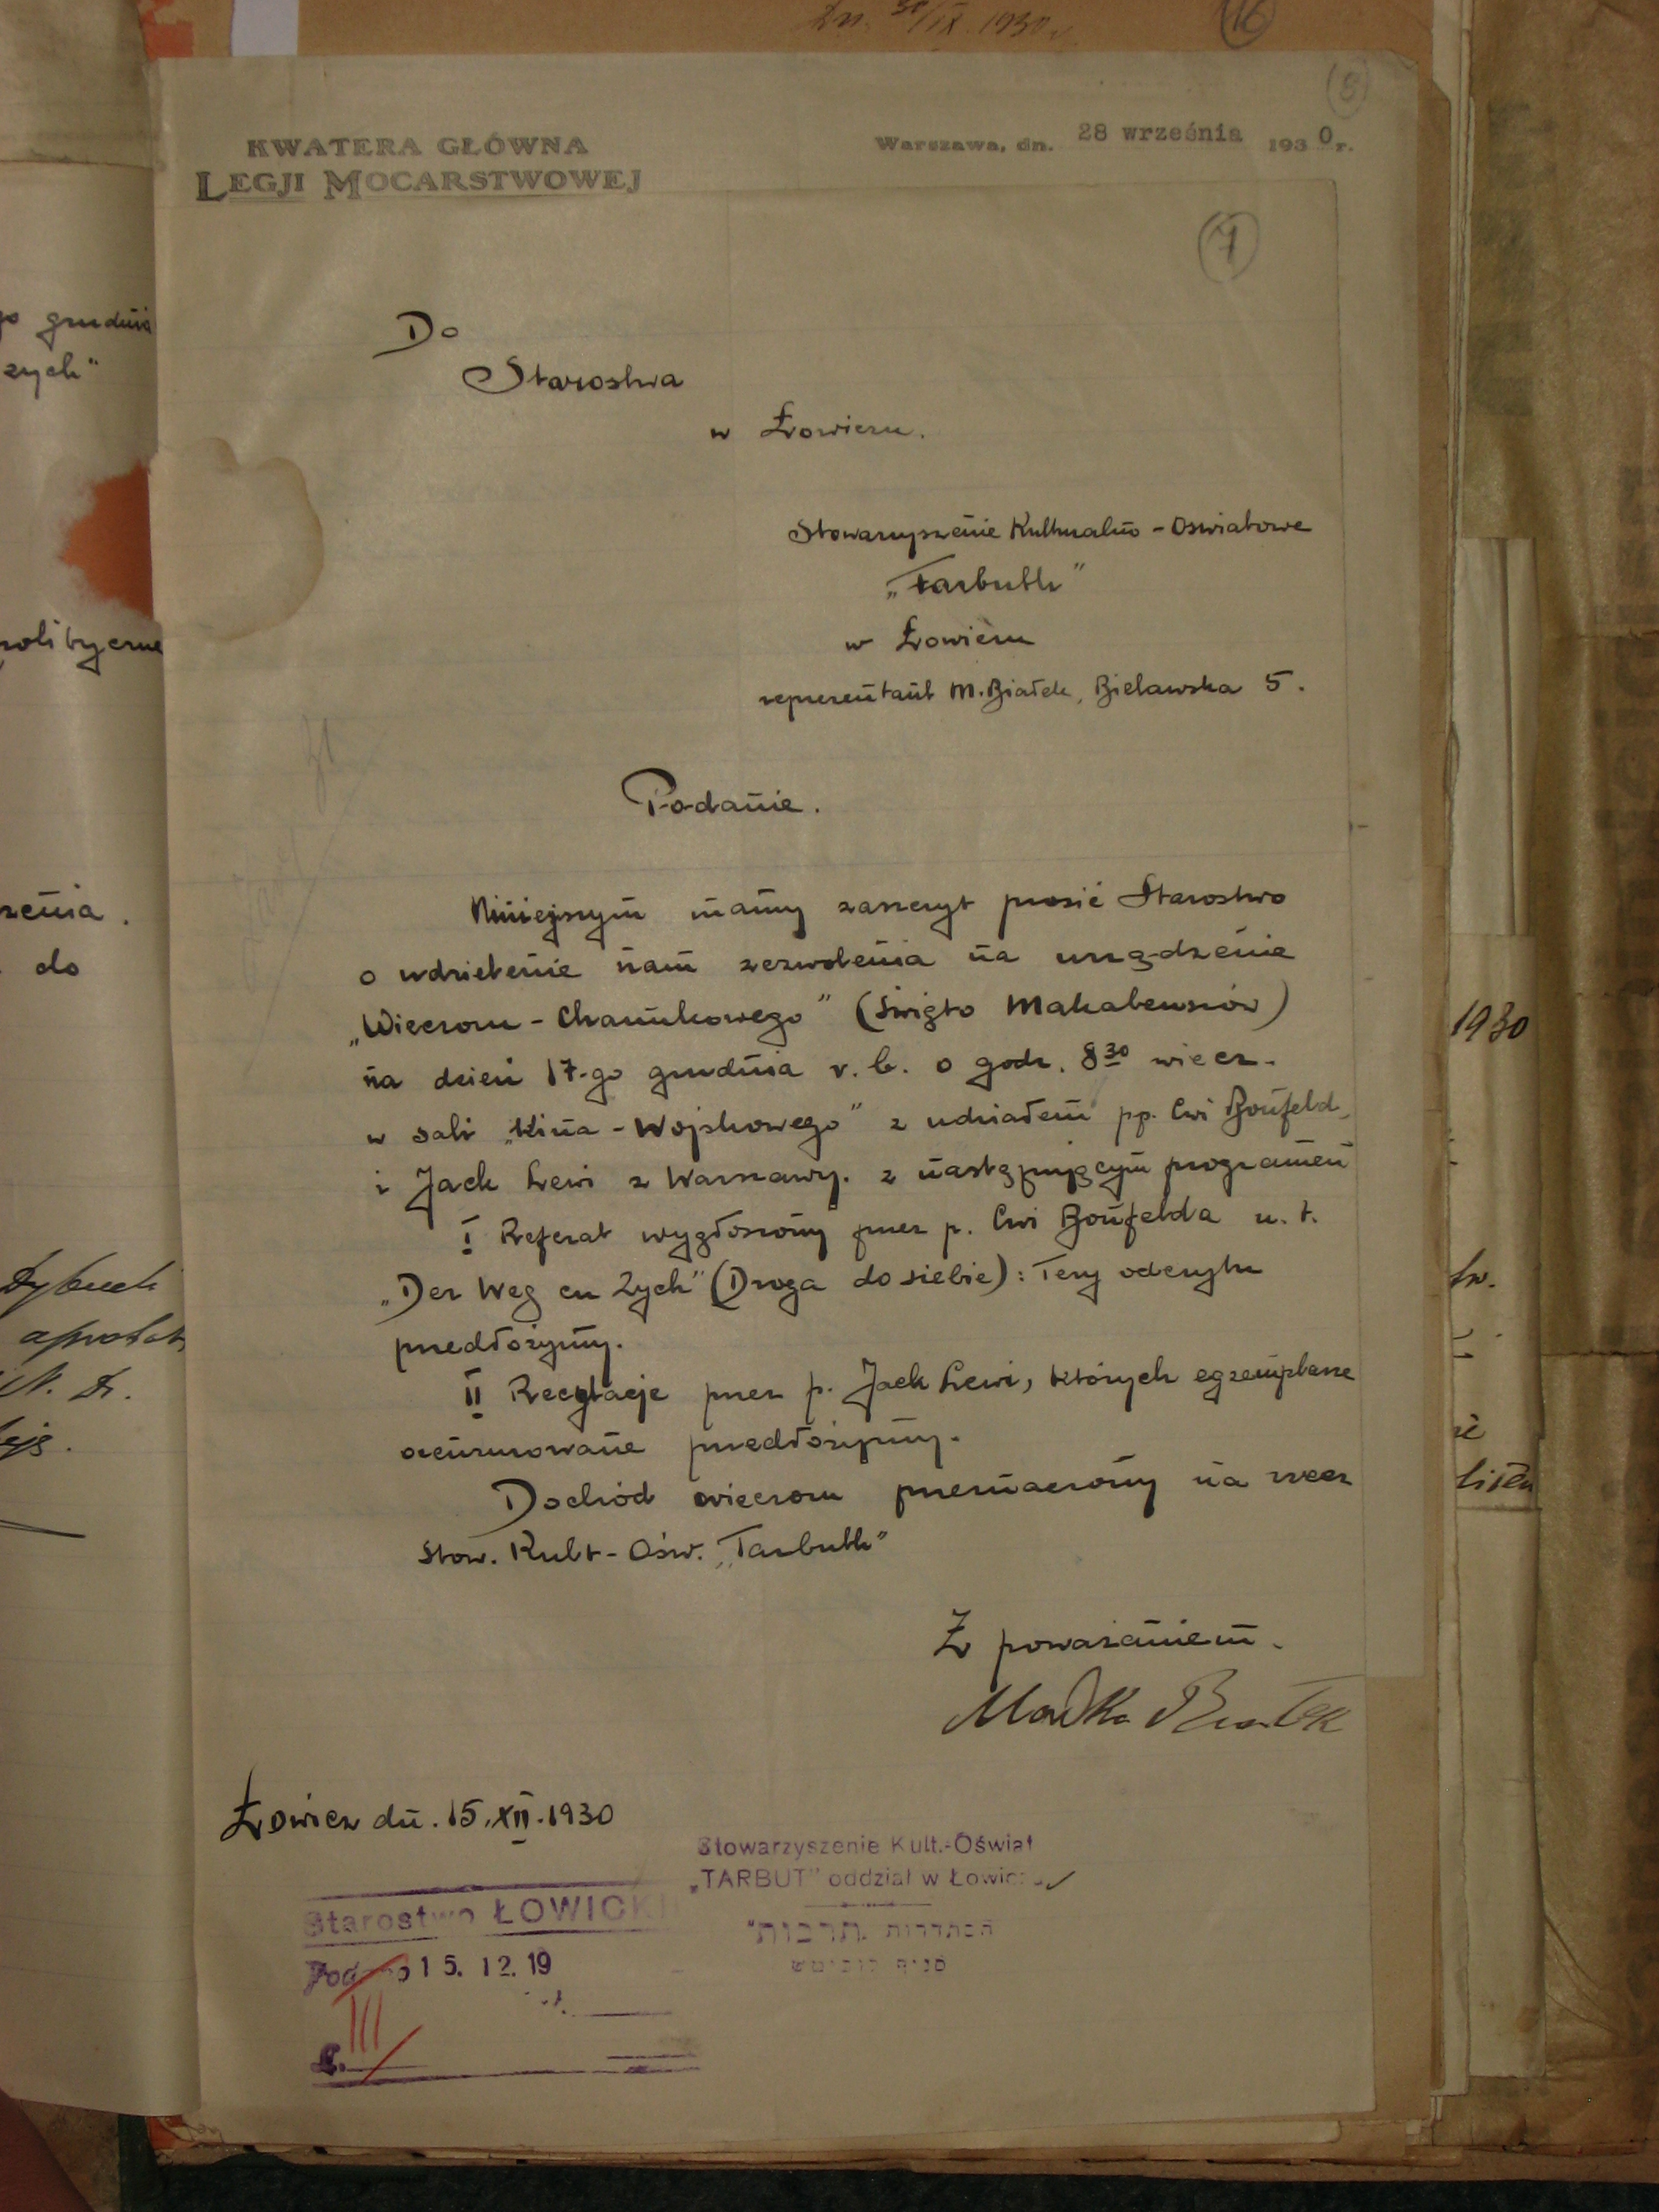 Dn. 30/IX. 1930 r.
16
8
KWATERA GŁÓWNA
LEGJI MOCARSTWOWEJ
Warszawa, dn. 28 września 1930 r.
7
Do
Starostwa
w Łowiczu.
Stowarzyszenie Kulturalno - Oświatowe
„Tarbuth"
w Łowiczu
reprezentant M. Białek, Bielawska 5.
Podanie.
Niniejszym mamy zaszczyt prosić Starostwo
o udzielenie nam zezwolenia na urządzenie
„Wieczoru - Chanukowego" (Święto Makabeuszów)
na dzień 17-go grudnia r. b. o godz. 8 30 wiecz.
w sali „Kina - Wojskowego" z udziałem pp. Cwi Bonfeld
i Jack Lewi z Warszawy. z następującym programem
I Referat wygłoszony przez p. Cwi Bonfelda n. t.
„Der Weg cu Zych" (Droga do siebie): Tezy odczytu
przedłożymy.
II Recytacje przez p. Jack Lewi, których egzemplarze
ocenzurowane przedłożymy.
Dochód wieczoru przeznaczony na rzecz
Stow. Kult - Ośw. „Tarbuth"
Z poważaniem.
Mordka Białek
Łowicz dn. 15. XII. 1930
Stowarzyszenie Kult.-Oświat
„TARBUT" oddział w Łowiczu
הסתדרות „תרבות"
סניף לוביטש
Starostwo ŁOWICKI
Podano 15. 12. 19
III
L.
go grudnia
zych"
polityczne
zenia.
do
Dybuck
1930